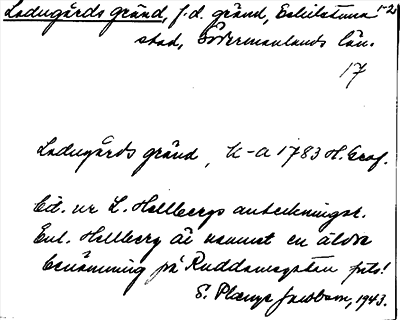 Ladugårds gränd, f.d. gränd, Eskilstuna
stad, Södermanlands län.
17
Ladugårds gränd, K-a 1783 H. Graf.
Cit. ur L. Hellbergs anteckningar.
Enl. Hellberg är namnet en äldre
benämning på Ruddamsgatan
S. Plænge Jacobson, 1943.